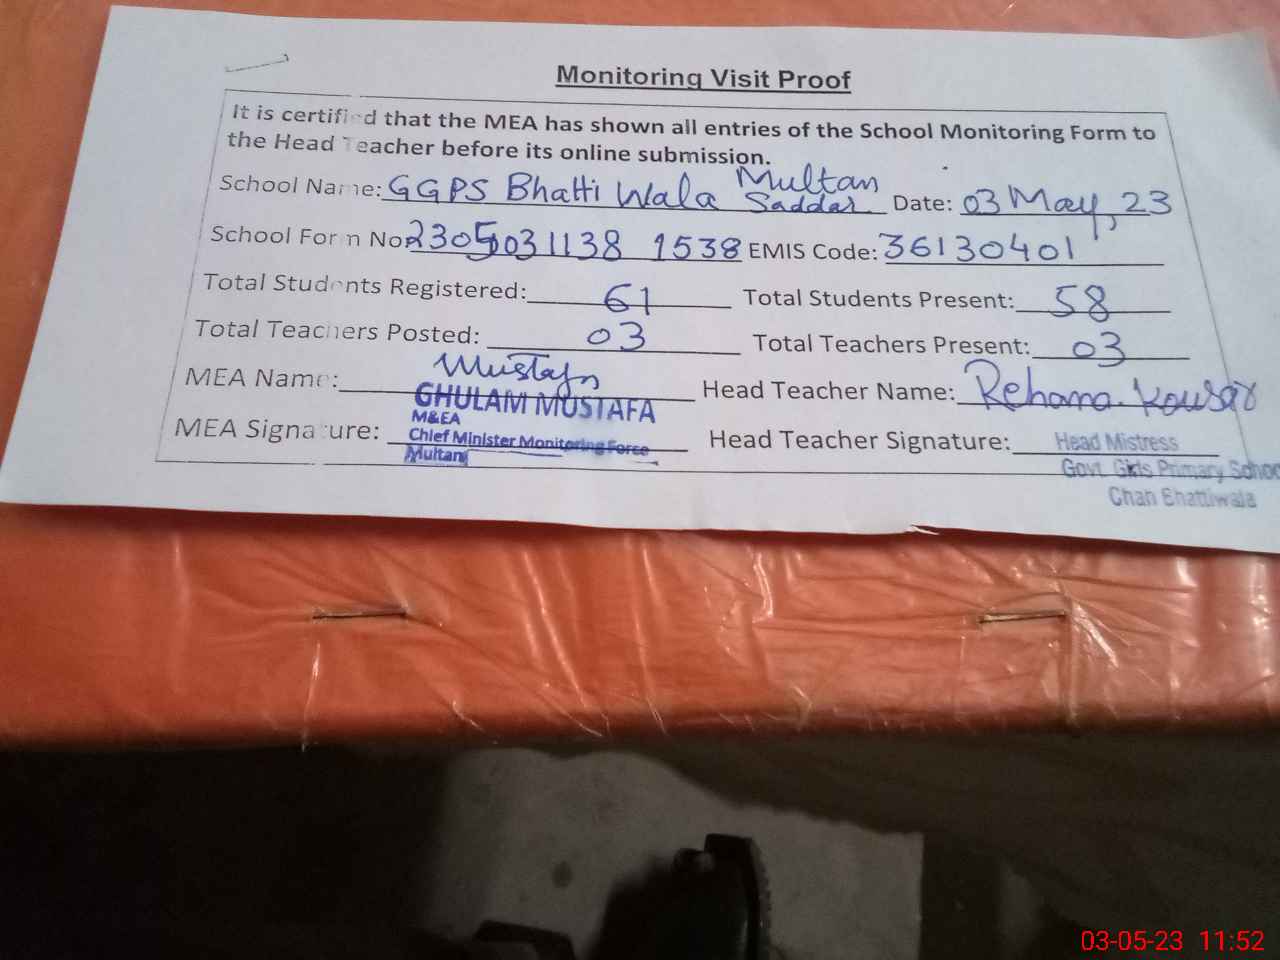 Monitoring Visit Proof
It is certified that the MEA has shown all entries of the School Monitoring Form to
the Head Teacher before its online submission.
School Name: GGPS Bhatti Wala Multan Saddar Date: 03 May, 23
School Form No: 23051031138 1538 EMIS Code: 36130401
Total Students Registered: 61 Total Students Present: 58
Total Teachers Posted: 03 Total Teachers Present: 03
MEA Name: Mustafa Head Teacher Name: Rehana Kousar
GHULAM MUSTAFA
M&EA
MEA Signature: Chief Minister Monitoring Force Head Teacher Signature: Head Mistress
Multan Govt. Girls Primary School
Chah Bhattiwala
03-05-23 11:52